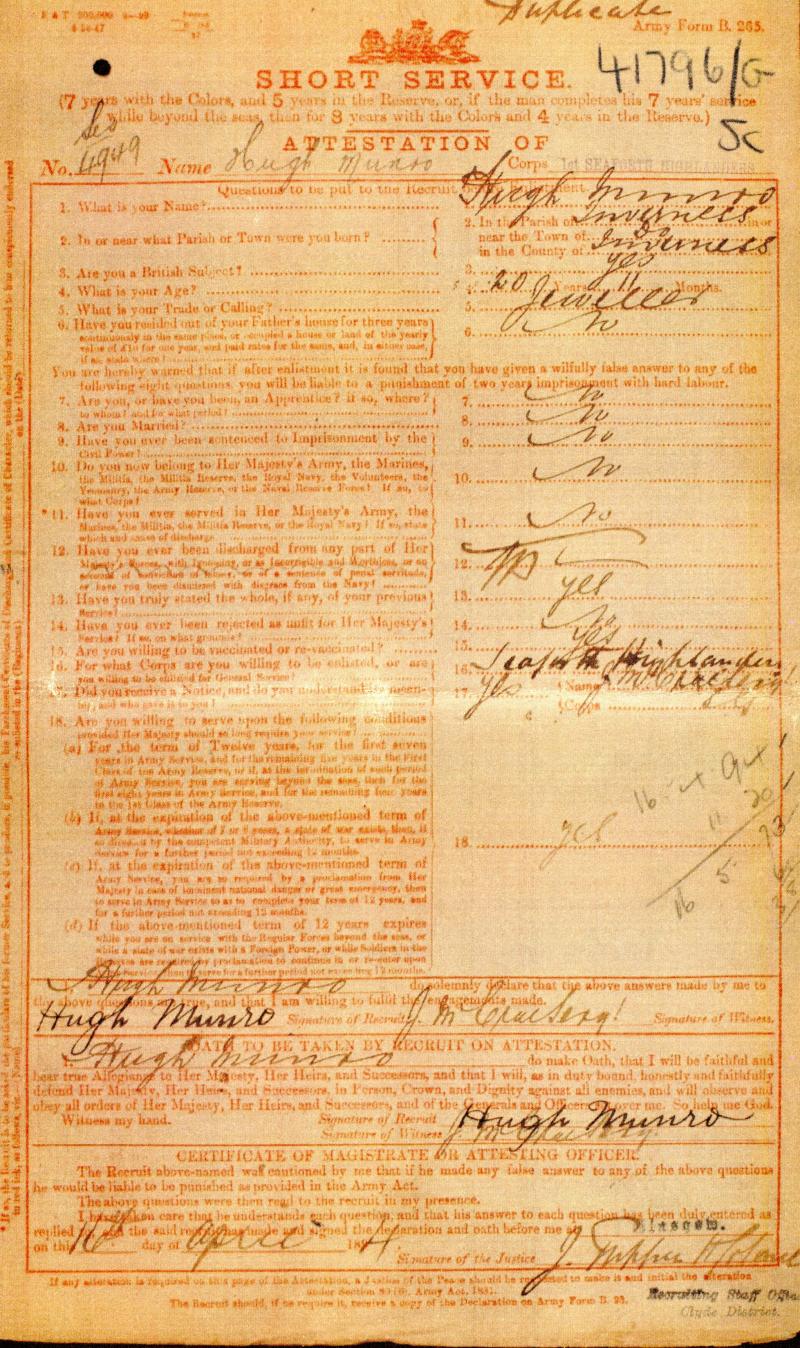 Duplicate
Army Form B. 265.
41796/G
5c
SHORT SERVICE.
(7 years with the Colors, and 5 years in the Reserve, or, if the man completes his 7 years' service
while beyond the seas, then for 8 years with the Colors and 4 years in the Reserve.)
ATTESTATION OF
No. 4949 Name Hugh Munro Corps 1st SEAFORTH HIGHLANDERS
Questions to be put to the Recruit
1. What is your Name? Hugh Munro
2. In or near what Parish or Town were you born? 2. In the Parish of Inverness
near the Town of Do
in the County of Inverness
3. Are you a British Subject? 3. yes
4. What is your Age? 20 Years 11 Months.
5. What is your Trade or Calling? 5. Jeweller
6. Have you resided out of your Father's house for three years 6. No
continuously in the same place, or occupied a house or land of the yearly
value of £10 for one year, and paid rates for the same, and, in either case,
if so, state where?
You are hereby warned that if after enlistment it is found that you have given a wilfully false answer to any of the
following eight questions, you will be liable to a punishment of two years imprisonment with hard labour.
7. Are you, or have you been, an Apprentice? if so, where? 7. No
to whom? and for what period?
8. Are you Married? 8. No
9. Have you ever been sentenced to Imprisonment by the 9. No
Civil Power?
10. Do you now belong to Her Majesty's Army, the Marines, 10. No
the Militia, the Militia Reserve, the Royal Navy, the Volunteers, the
Yeomanry, the Army Reserve, or the Naval Reserve Force? If so, to
what Corps?
*11. Have you ever served in Her Majesty's Army, the 11. No
Marines, the Militia, the Militia Reserve, or the Royal Navy? If so, state
which and cause of discharge
12. Have you ever been discharged from any part of Her 12.
Majesty's Forces, with Ignominy, or as Incorrigible and Worthless, or on
account of conviction of felony, or of a sentence of penal servitude,
or have you been dismissed with disgrace from the Navy?
13. Have you truly stated the whole, if any, of your previous 13. yes
Service?
14. Have you ever been rejected as unfit for Her Majesty's 14. No
Service? If so, on what grounds?
15. Are you willing to be vaccinated or re-vaccinated? 15. Yes
16. For what Corps are you willing to be enlisted, or are 16. Seaforth Highlanders
you willing to be enlisted for General Service?
17. Did you receive a Notice, and do you understand its mean- 17. yes Name
ing, and who gave it to you? Corps
18. Are you willing to serve upon the following conditions
provided Her Majesty should so long require your service?
(a) For the term of Twelve years, for the first seven
years in Army Service, and for the remaining five years in the First
Class of the Army Reserve, or if, at the termination of such period
of Army Service, you are serving beyond the seas, then for the
first eight years in Army Service, and for the remaining four years
in the 1st Class of the Army Reserve.
(b) If, at the expiration of the above-mentioned term of
Army Service, whether of 7 or 8 years, a state of war exists, then, if
so directed by the competent Military Authority, to serve in Army
Service for a further period not exceeding 12 months.
18. yes
16 4 94
11 20
16 5
(c) If, at the expiration of the above-mentioned term of
Army Service, you are so required by a proclamation from Her
Majesty in case of imminent national danger or great emergency, then
to serve in Army Service so as to complete your term of 12 years, and
for a further period not exceeding 12 months.
(d) If the above-mentioned term of 12 years expires
while you are on service with the Regular Forces beyond the seas, or
while a state of war exists with a Foreign Power, or while Soldiers in the
Reserves are required by proclamation to continue in or re-enter upon
Army Service, then to serve for a further period not exceeding 12 months.
I Hugh Munro do solemnly declare that the above answers made by me to
the above questions are true, and that I am willing to fulfil the engagements made.
Hugh Munro Signature of Recruit Signature of Witness.
OATH TO BE TAKEN BY RECRUIT ON ATTESTATION.
I, Hugh Munro do make Oath, that I will be faithful and
bear true Allegiance to Her Majesty, Her Heirs, and Successors, and that I will, as in duty bound, honestly and faithfully
defend Her Majesty, Her Heirs, and Successors, in Person, Crown, and Dignity against all enemies, and will observe and
obey all orders of Her Majesty, Her Heirs, and Successors, and of the Generals and Officers set over me. So help me God.
Witness my hand. Signature of Recruit Hugh Munro
Signature of Witness
CERTIFICATE OF MAGISTRATE OR ATTESTING OFFICER.
The Recruit above-named was cautioned by me that if he made any false answer to any of the above questions
he would be liable to be punished as provided in the Army Act.
The above questions were then read to the recruit in my presence.
I have taken care that he understands each question, and that his answer to each question has been duly entered as
replied to, and the said recruit has made and signed the declaration and oath before me at Glasgow.
on this 16th day of April 18
Signature of the Justice
If any alteration is required on this page of the Attestation, a Justice of the Peace should be requested to make it and initial the alteration
under Section 80 (6), Army Act, 1881.
The Recruit should, if he require it, receive a copy of the Declaration on Army Form B.
Recruiting Staff Office
Clyde District.